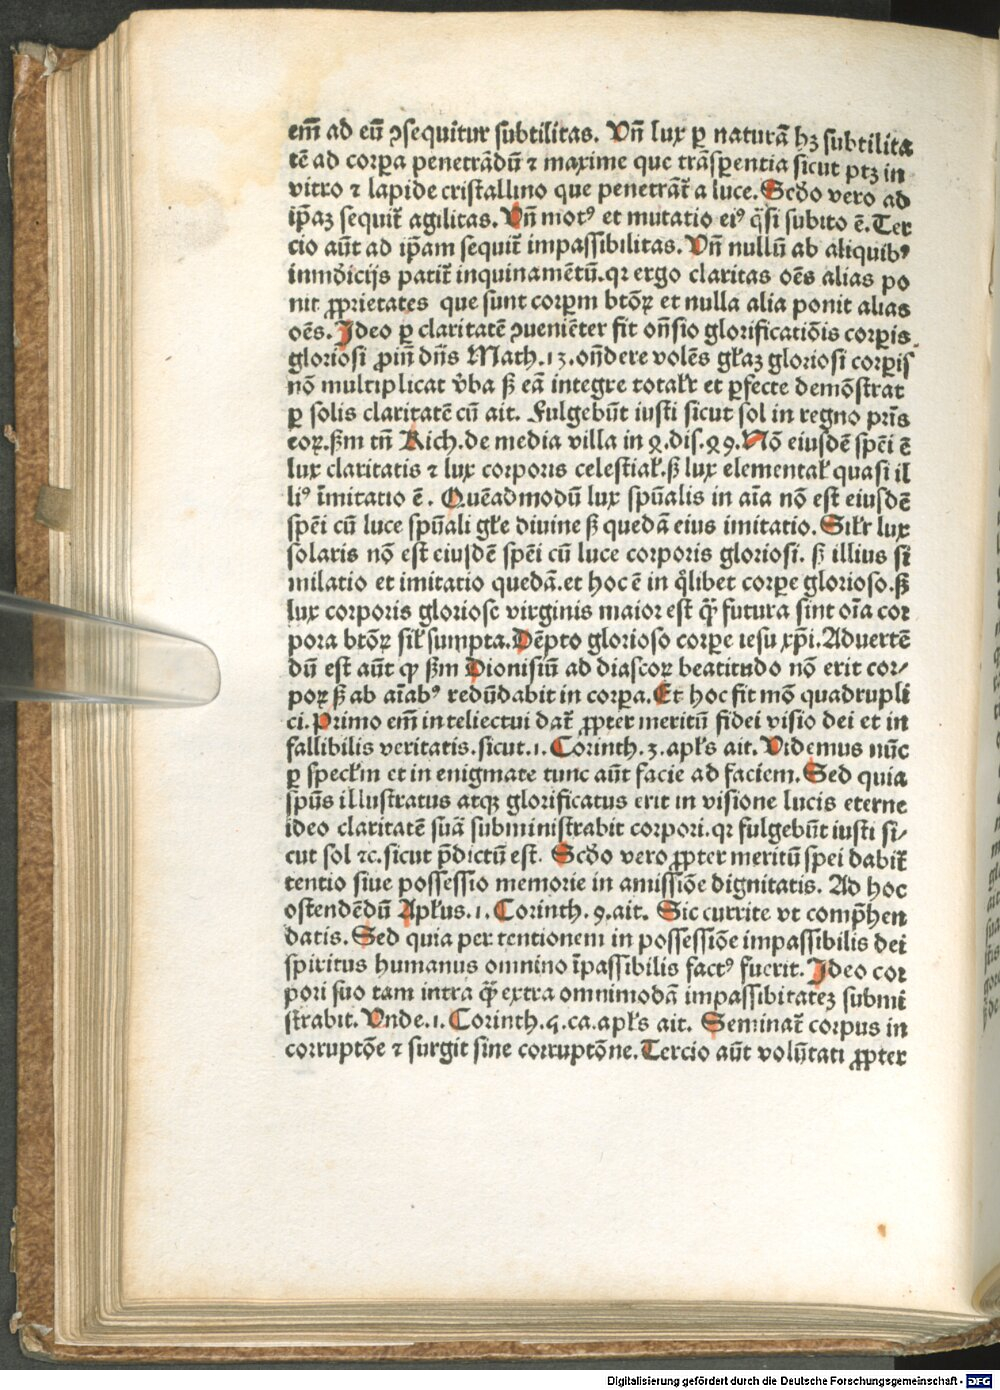 em̄ ad eū ꝯsequitur subtilitas. Vn̄ lux ꝑ naturā hꝫ subtilita
tē ad corꝑa penetrādū ⁊ maxime que trāsꝑentia sicut ptꝫ in
vitro ⁊ lapide cristallino que penetrāt᷑ a luce. Scd̄o vero ad
ip̄aꝫ sequit᷑ agilitas. Vn̄ motꝰ et mutatio eiꝰ q̄si subito ē. Ter
cio aūt ad ip̄am sequit᷑ impassibilitas. Vn̄ nullū ab aliquibꝰ
inmūdicijs patit᷑ inquinamētū. qꝛ ergo claritas oēs alias po
nit ꝓprietates que sunt corꝑm btōꝝ et nulla alia ponit alias
oēs. Ideo ꝑ claritatē ꝯueniēter fit on̄sio glorificatiōis corꝑis
gloriosi ꝓin̄ dn̄s Math. 13. on̄dere volēs gl̄aꝫ gloriosi corꝑis
nō multiplicat v̄ba sꝫ eā integre totalr̄ et ꝑfecte demōstrat
ꝑ solis claritatē cū ait. Fulgebūt iusti sicut sol in regno pr̄is
eoꝝ. sm̄ tn̄ Rich. de media villa in 4. dis. 49. Nō eiusdē sp̄ei ē
lux claritatis ⁊ lux corporis celestial̄. sꝫ lux elemental̄ quasi il
liꝰ īmitatio ē. Quēadmodū lux spūalis in aīa nō est eiusdē
sp̄ei cū luce spūali gl̄e diuine sꝫ quedā eius imitatio. Silr̄ lux
solaris nō est eiusdē sp̄ei cū luce corporis gloriosi. sꝫ illius si
milatio et imitatio quedā. et hoc ē in q̄libet corꝑe glorioso. sꝫ
lux corporis gloriose virginis maior est q̄ꝫ futura sint oīa cor
pora btōꝝ sil̄ sumpta. Dēpto glorioso corꝑe iesu xp̄i. Aduertē
dū est aūt ꝙ sm̄ Dionisiū ad diascoꝝ beatitudo nō erit cor⸗
poꝝ sꝫ ab aīabꝰ redūdabit in corꝑa. Et hoc fit mō quadrupli
ci. Primo em̄ intellectui dat᷑ ꝓpter meritū fidei visio dei et in
fallibilis veritatis. sicut. 1. Corinth. 3. apl̄s ait. Videmus nūc
ꝑ specl̄m et in enigmate tunc aūt facie ad faciem. Sed quia
spūs illustratus atqꝫ glorificatus erit in visione lucis eterne
ideo claritatē suā subministrabit corpori. qꝛ fulgebūt iusti si⸗
cut sol ⁊c. sicut p̄dictū est. Scd̄o vero ꝓpter meritū spei dabit᷑
tentio siue possessio memorie in amissiōe dignitatis. Ad hoc
ostendēdū Apl̄us. 1. Corinth. 9. ait. Sic currite vt comp̄hen
datis. Sed quia per tentionem in possessiōe impassibilis dei
spiritus humanus omnino īpassibilis factꝰ fuerit. Ideo cor
pori suo tam intra q̄ꝫ extra omnimodā impassibitateꝫ submī
strabit. Vnde. 1. Corinth. 15. ca. apl̄s ait. Seminat᷑ corpus in
corruptōe ⁊ surgit sine corruptōne. Tercio aūt volūtati ꝓpter
Digitalisierung gefördert durch die Deutsche Forschungsgemeinschaft - DFG